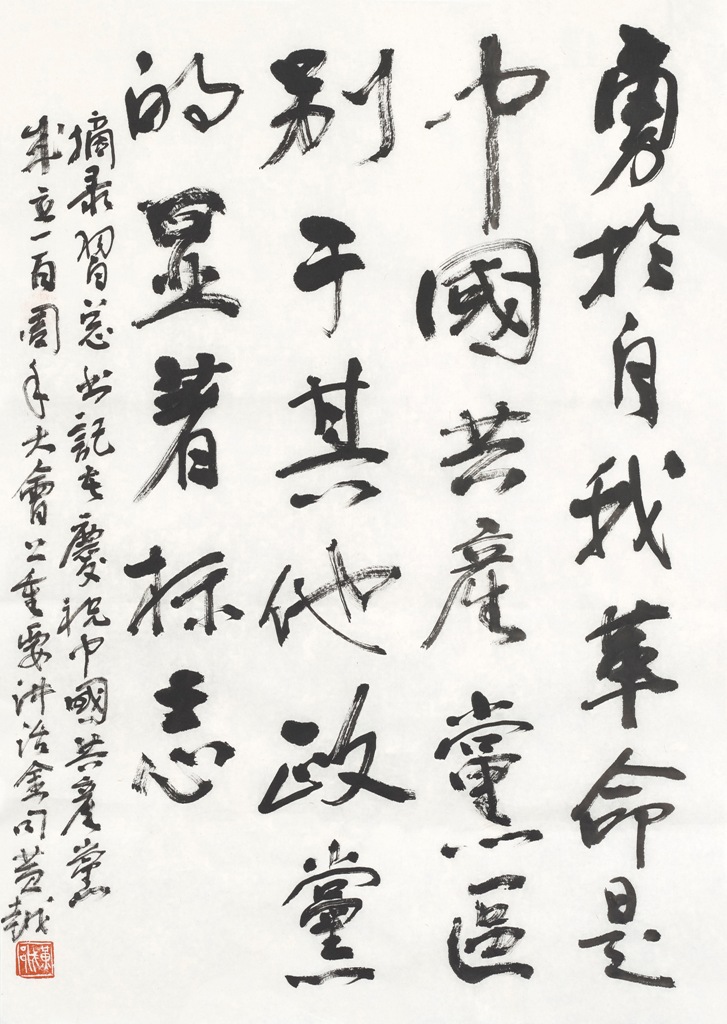 勇於自我革命是
中國共產黨區
别于其他政黨
的显著标志
摘录習总书記在慶祝中國共產黨
成立一百周年大會上重要讲话金句黄越